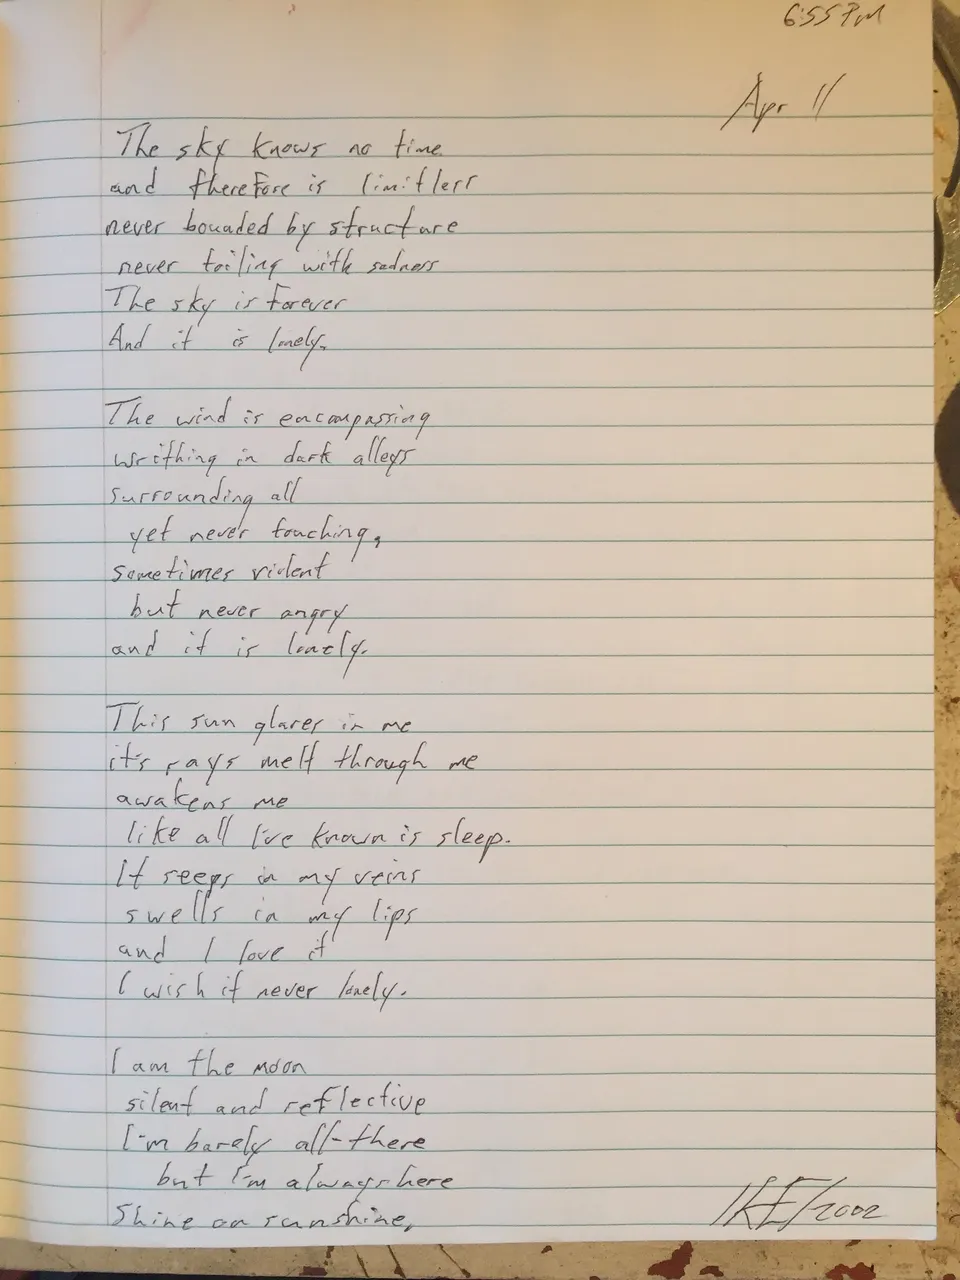 6:55 PM
Apr 11
The sky knows no time
and therefore is limitless
never bounded by structure
never toiling with sadness
The sky is forever
And it is lonely.
The wind is encompassing
writhing in dark alleys
surrounding all
yet never touching,
sometimes violent
but never angry
and it is lonely.
This sun glares in me
it's rays melt through me
awakens me
like all I've known is sleep.
It seeps in my veins
swells in my lips
and I love it
I wish it never lonely.
I am the moon
silent and reflective
I'm barely all-there
but I'm always here
Shine on sunshine,
IKE/2002